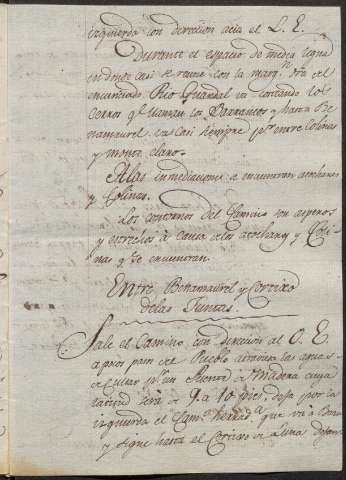 izquierda con direccion acia el L. E.
Durante el espacio de media legua
en donde casi se reune con la marg.n dra del
enunciado Rio Guardal va cortando los
Cerros q.e llaman los Barrancos y hasta Be-
namaurel va casi siempre p.r entre Colinas
y monte claro.
A las inmediaciones se encuentran atochares
y Colinas.
Los contornos del Camino son asperos
y estrechos à causa de los atochares y Coli-
nas q.e se encuentran.
Entre Benamaurel y Cortixo
de las Juntas.
Sale el Camino con direccion al O. E.
a pocos pasos del Pueblo atraviesa las aguas
de Cullar p.r un Puente de Madera cuya
latitud serà de 9. a 10 pies, deja por la
izquierda el Cam.o herrad.a que va à Baza
y sigue hasta el Cortixo de Luna dejando